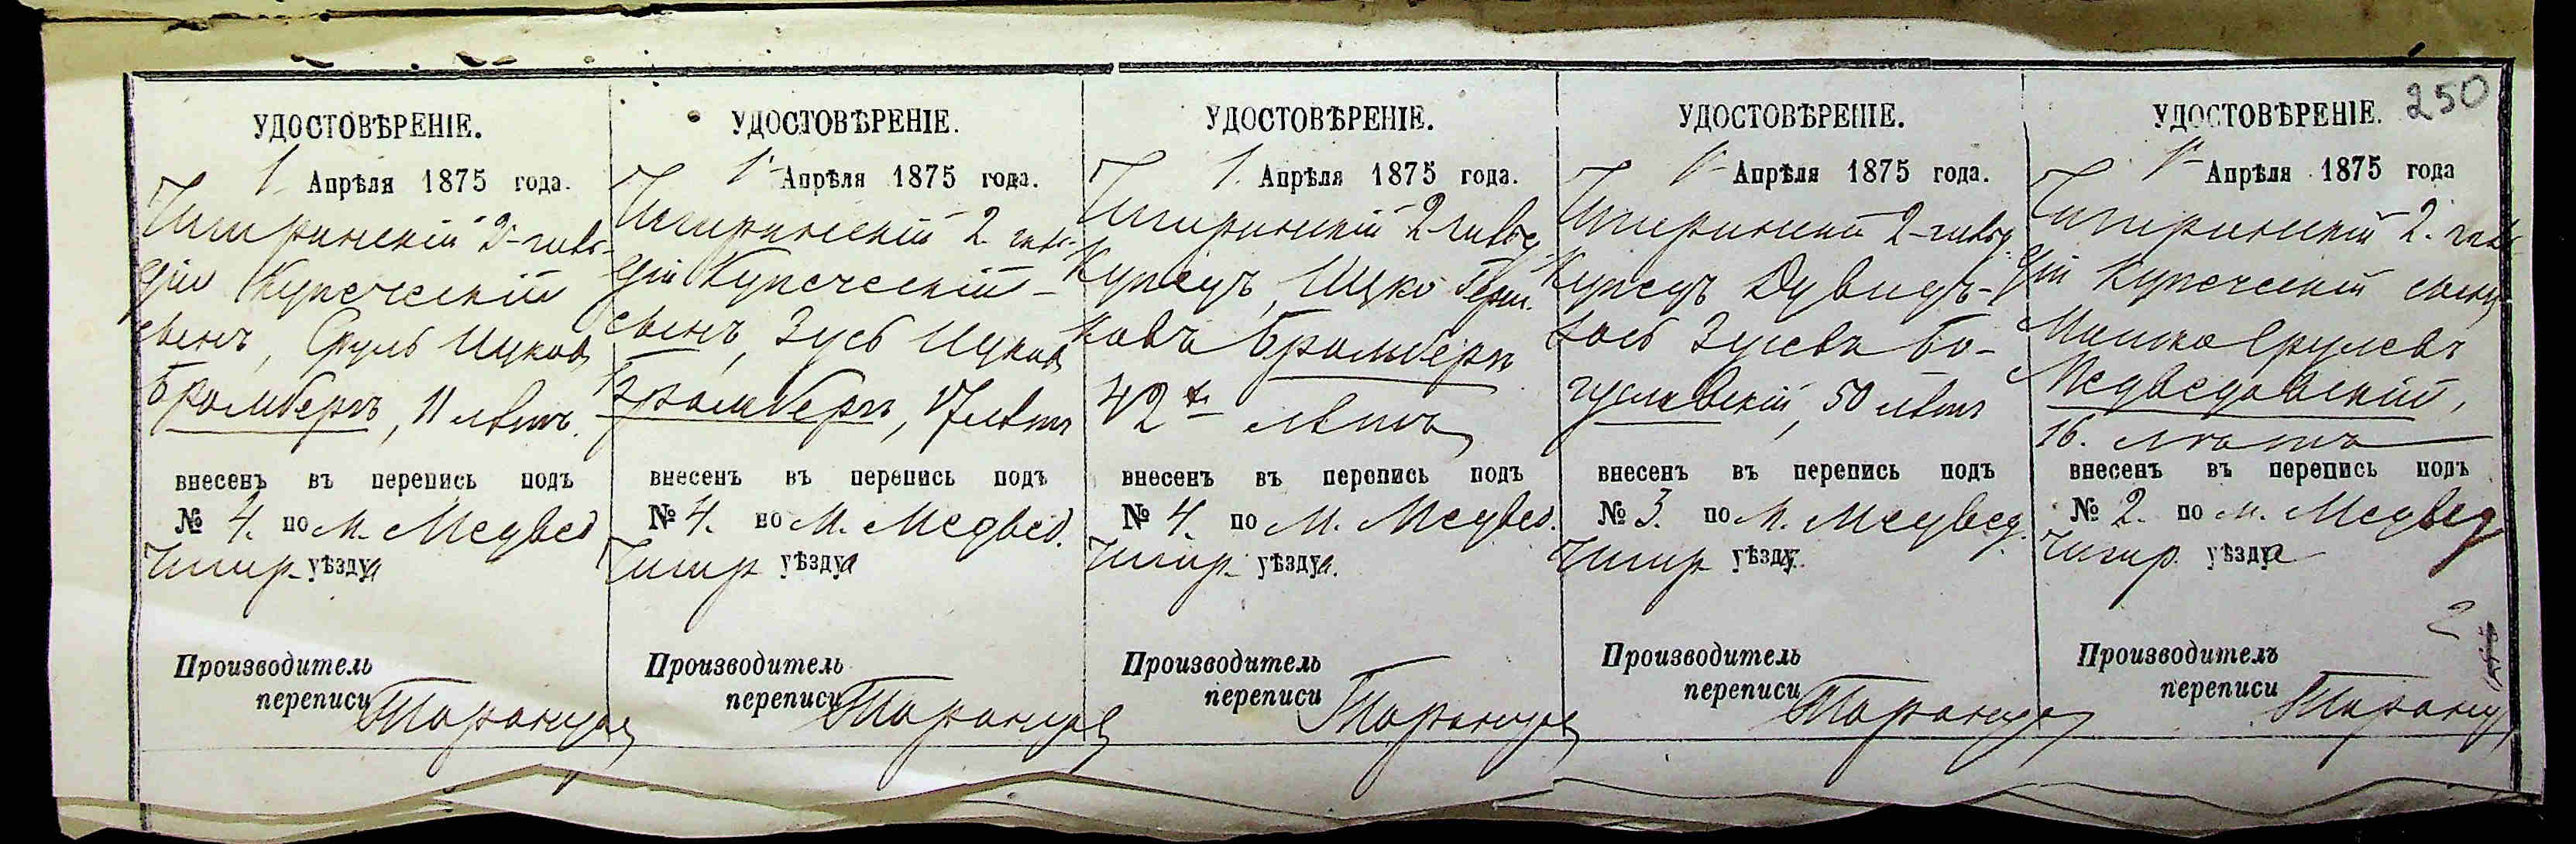 250
УДОСТОВѢРЕНІЕ.
1 Апрѣля 1875 года.
Чигиринскій 2-гиль-
діи Купеческій
сынъ, Сруль Ицковъ
Бромбергъ, 11 лѣтъ.
внесенъ въ перепись подъ
№ 4. по м. Медвед
Чигир. уѣзда
Производитель
переписи
УДОСТОВѢРЕНІЕ.
1 Апрѣля 1875 года.
Чигиринскій 2 гиль-
діи Купеческій
сынъ, Зусь Ицковъ
Бромбергъ, 17 лѣтъ
внесенъ въ перепись подъ
№ 4. по м. Медвед.
Чигир уѣзда
Производитель
переписи
УДОСТОВѢРЕНІЕ.
1 Апрѣля 1875 года.
Чигиринскій 2 гильд.
Купецъ, Ицко Герш-
ковъ Бромбергъ
42 лѣтъ
внесенъ въ перепись подъ
№ 4. по м. Медвед.
Чигир. уѣзда.
Производитель
переписи
УДОСТОВѢРЕНІЕ.
1 Апрѣля 1875 года.
Чигиринскій 2-гильд.
Купецъ Дувидъ-
Іось Зусевъ Бо-
гуславскій, 50 лѣтъ
внесенъ въ перепись подъ
№ 3. по м. Медвед.
Чигир уѣзду.
Производитель
переписи
УДОСТОВѢРЕНІЕ.
1 Апрѣля 1875 года
Чигиринскій 2. гиль-
діи Купеческій сынъ
Мошко Срулевъ
Медведовскій,
16. лѣтъ
внесенъ въ перепись подъ
№ 2. по м. Медвед
Чигир. уѣзда
2
Производитель
переписи